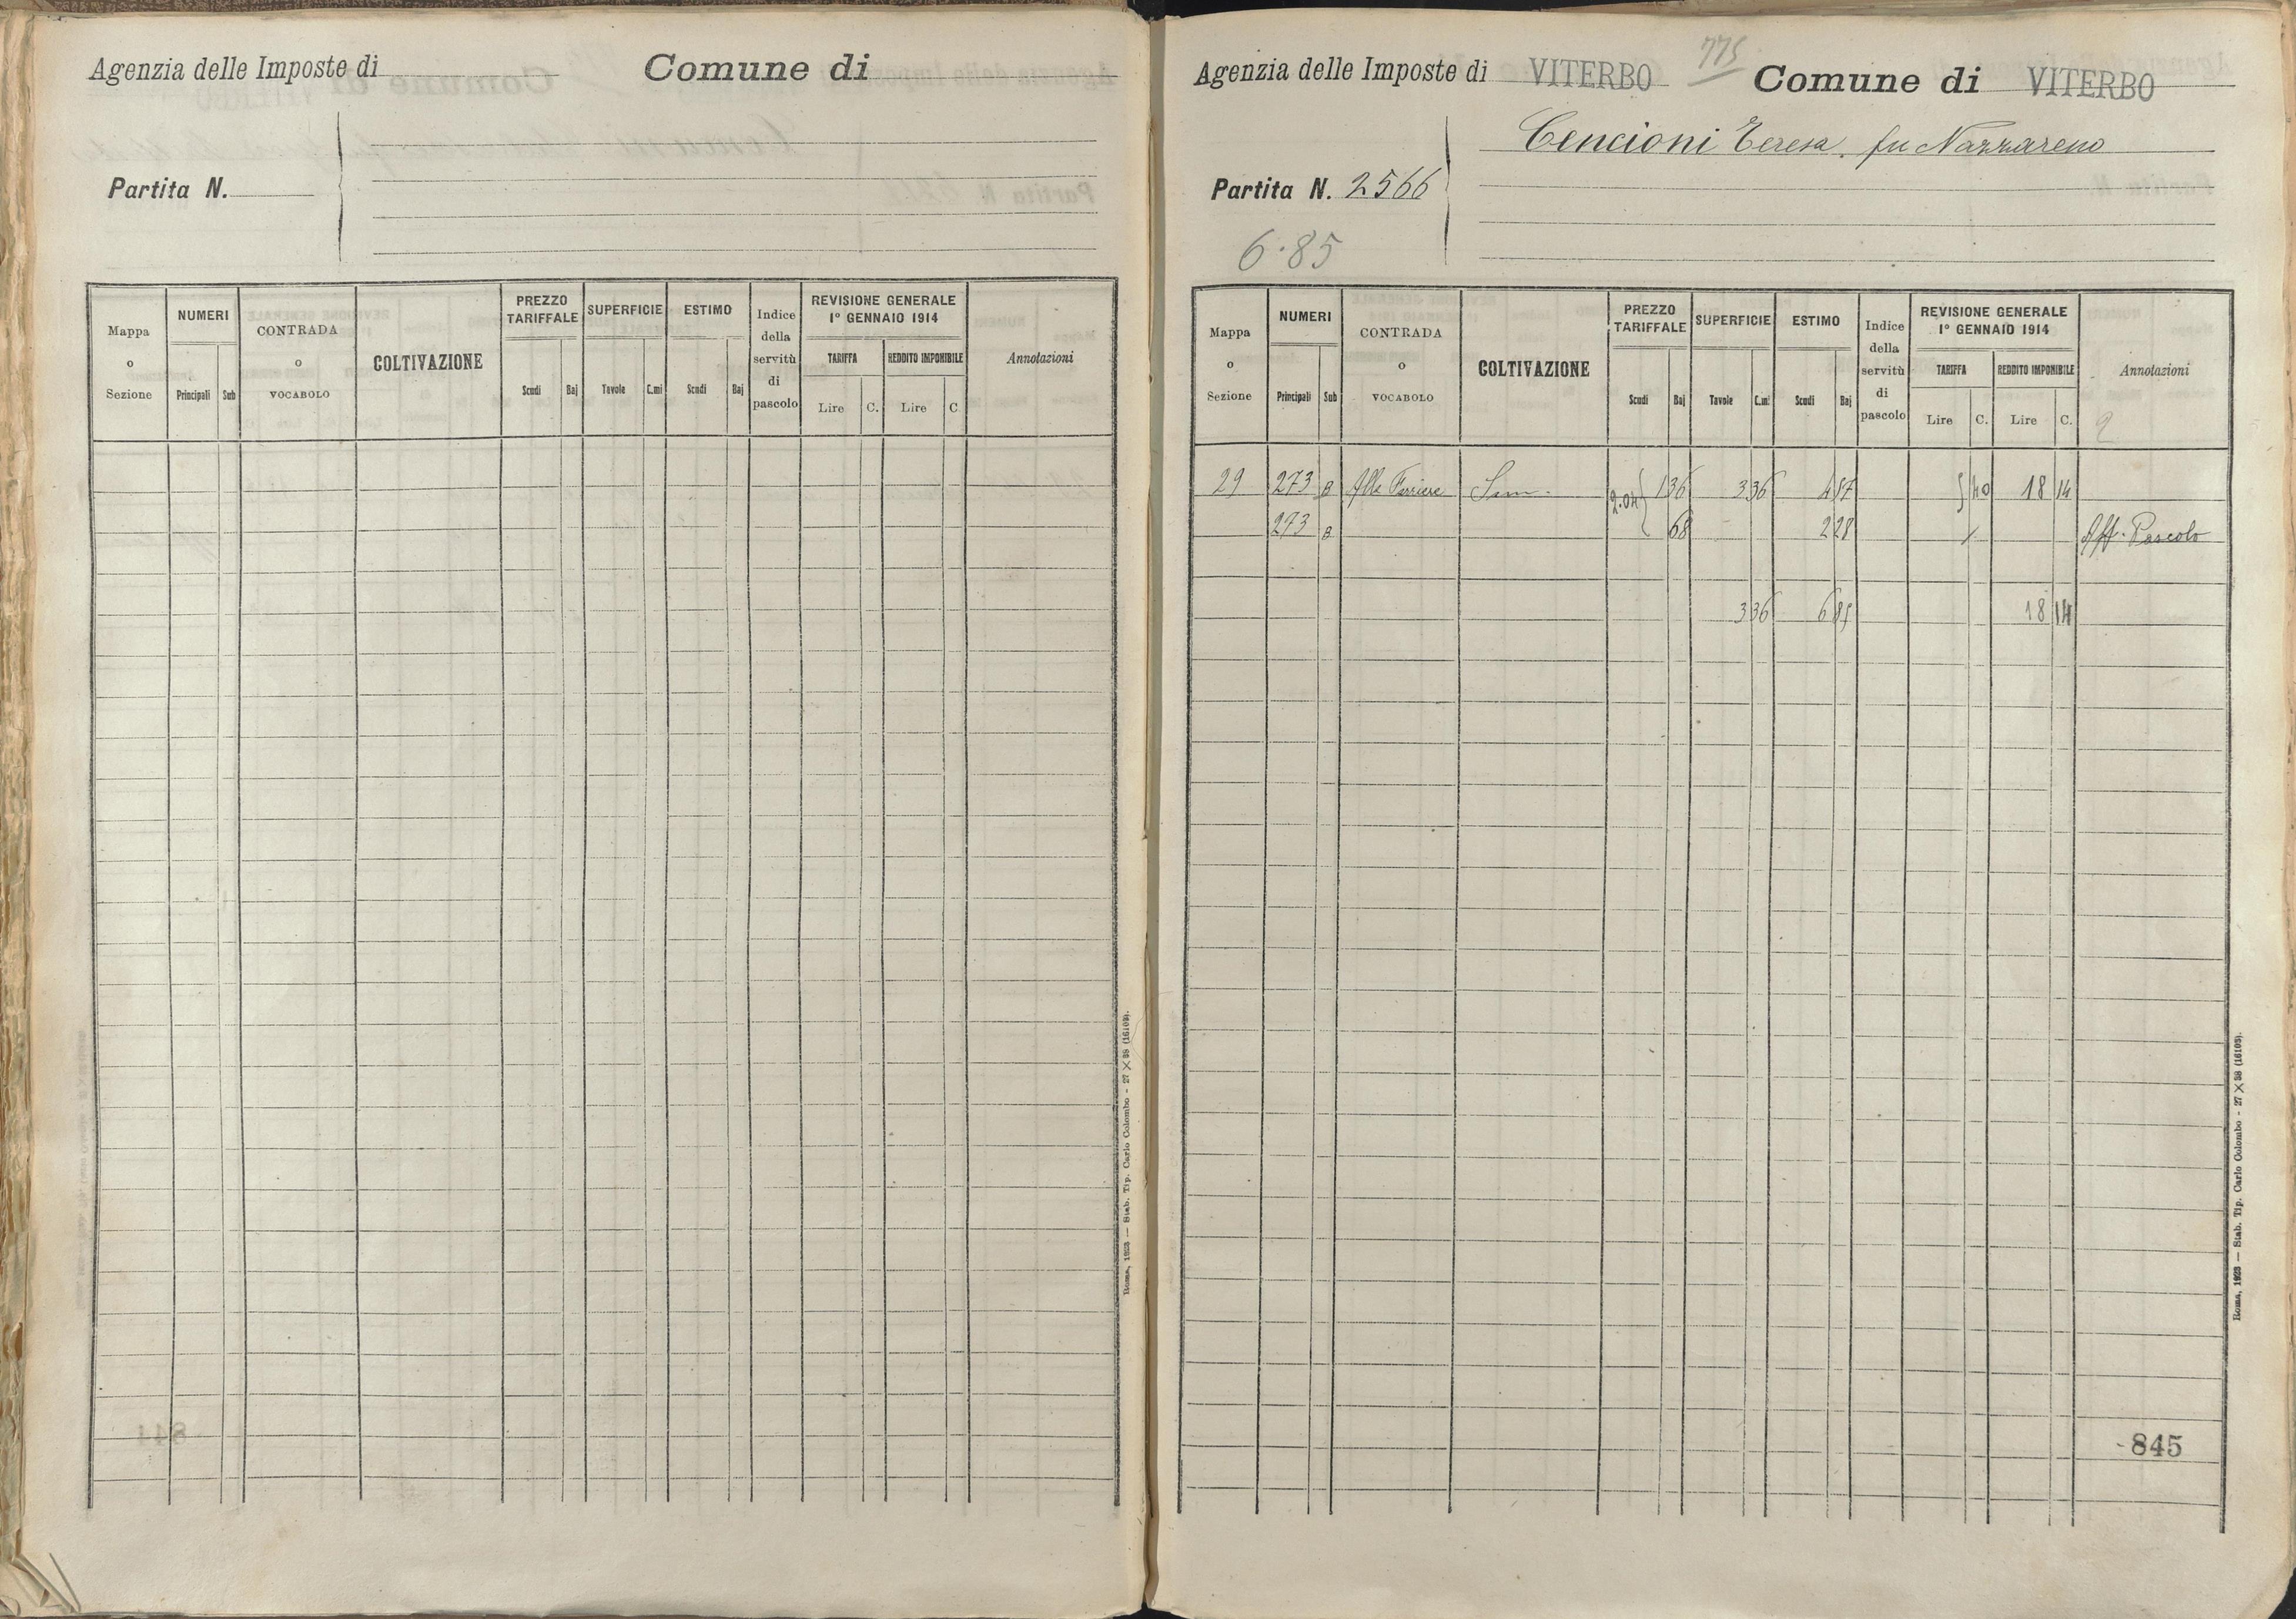 Agenzia delle Imposte di Comune di
Partita N.
Mappa o Sezione
NUMERI
Principali Sub
CONTRADA o VOCABOLO
COLTIVAZIONE
PREZZO TARIFFALE
Scudi Baj
SUPERFICIE
Tavole C.mi
ESTIMO
Scudi Baj
Indice della servitù di pascolo
REVISIONE GENERALE
1° GENNAIO 1914
TARIFFA REDDITO IMPONIBILE
Lire C. Lire C.
Annotazioni
Roma, 1923 — Stab. Tip. Carlo Colombo - 27 X 38 (16103).
775
Agenzia delle Imposte di VITERBO Comune di VITERBO
Cencioni Teresa. fu Nazzareno
Partita N. 2566
6.85
Mappa o Sezione
NUMERI
Principali Sub
CONTRADA o VOCABOLO
COLTIVAZIONE
PREZZO TARIFFALE
Scudi Baj
SUPERFICIE
Tavole C.mi
ESTIMO
Scudi Baj
Indice della servitù di pascolo
REVISIONE GENERALE
1° GENNAIO 1914
TARIFFA REDDITO IMPONIBILE
Lire C. Lire C.
Annotazioni
2
29 273 B Alle Farriere Sem. 2.04 1 36 3 36 4 57 5 40 18 14
273 B 68 2 28 Aff. Pascolo
3 36 6 85 18 14
845
Roma, 1923 — Stab. Tip. Carlo Colombo - 27 X 38 (16103).